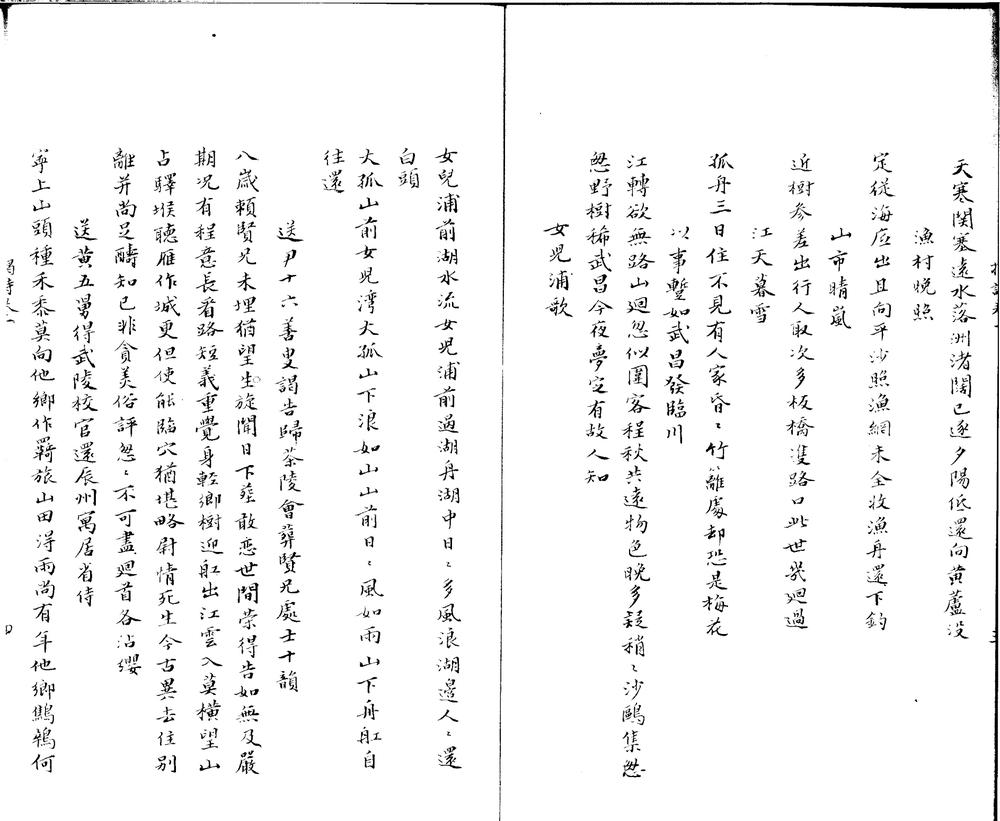 天寒関塞遠水落洲渚闊已逐夕陽低還向黃蘆沒
漁村晚照
定從海底出且向平沙照漁網未全收漁舟還下釣
山市晴嵐
近樹參差出行人取次多板橋雙路口此世幾廻過
江天暮雪
孤舟三日住不見有人家昏〻竹籬處却恐是梅花
以事蹔如武昌發臨川
江轉欲無路山迴忽似圍客程秋共遠物色晚多疑稍〻沙鷗集怱
怱野樹稀武昌今夜夢定有故人知
女兒浦歌
女兒浦前湖水流女兒浦前過湖舟湖中日〻多風浪湖邊人〻還
白頭
大孤山前女兒灣大孤山下浪如山山前日〻風如雨山下舟舡自
往還
送尹十六善叟謁告歸茶陵會葬賢兄處士十韻
八歲賴賢兄未埋猶望生旋聞日下塟敢戀世間榮得告如無及嚴
期况有程意長看路短義重覺身輕鄉樹迎舡出江雲入莫橫望山
占驛堠聽雁作城更但使能臨穴猶堪略尉情死生今古異去住別
離并尚足醻知已非貪美俗評忽〻不可盡廻首各沾纓
送黃五舅得武陵校官還辰州寓居省侍
寧上山頭種禾黍莫向他鄉作羇旅山田淂雨尚有年他鄉鷓鴣何